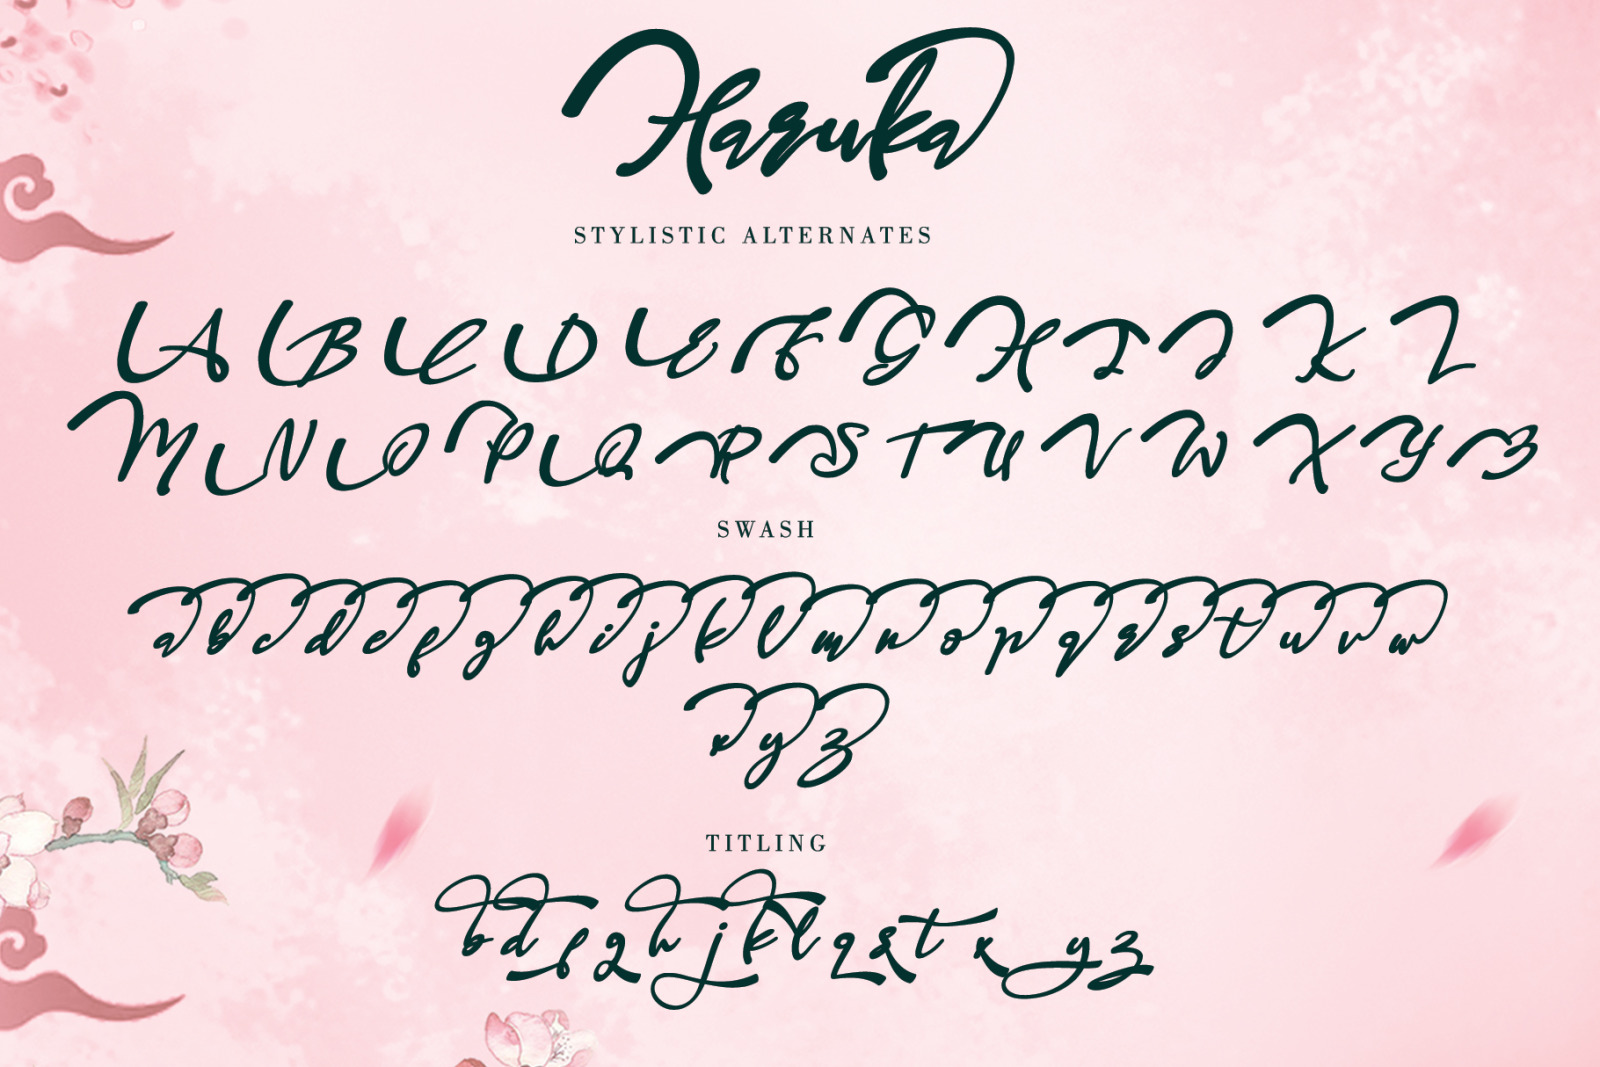 Haruka
STYLISTIC ALTERNATES
A B C D E F G H I J K L
M N O P Q R S T U V W X Y Z
SWASH
a b c d e f g h i j k l m n o p q r s t u v w
x y z
TITLING
b d f g h j k l q s t x y z